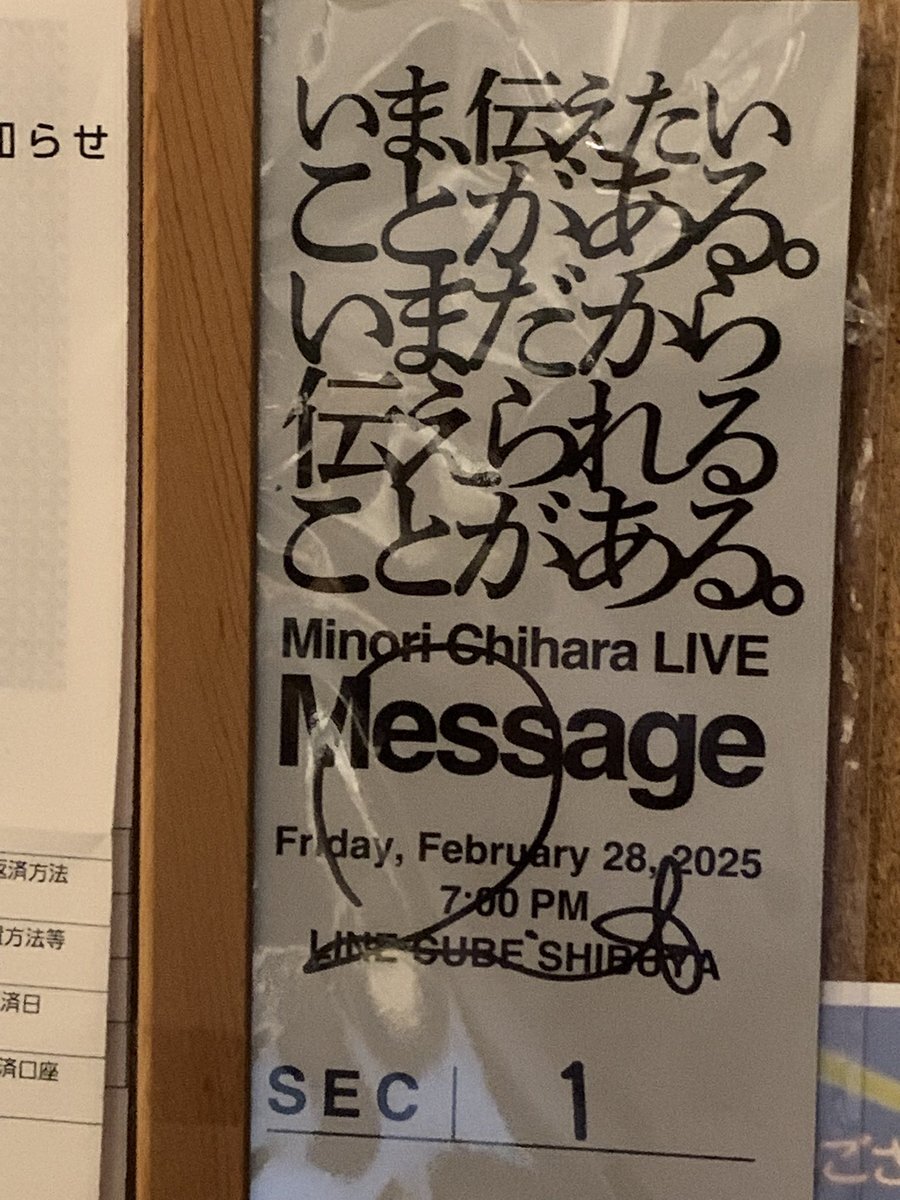 らせ
いま、伝えたい
ことがある。
いまだから
伝えられる
ことがある。
Minori Chihara LIVE
Message
Friday, February 28, 2025
7:00 PM
LINE CUBE SHIBUYA
SEC 1
返済方法
方法等
済日
済口座
ござ